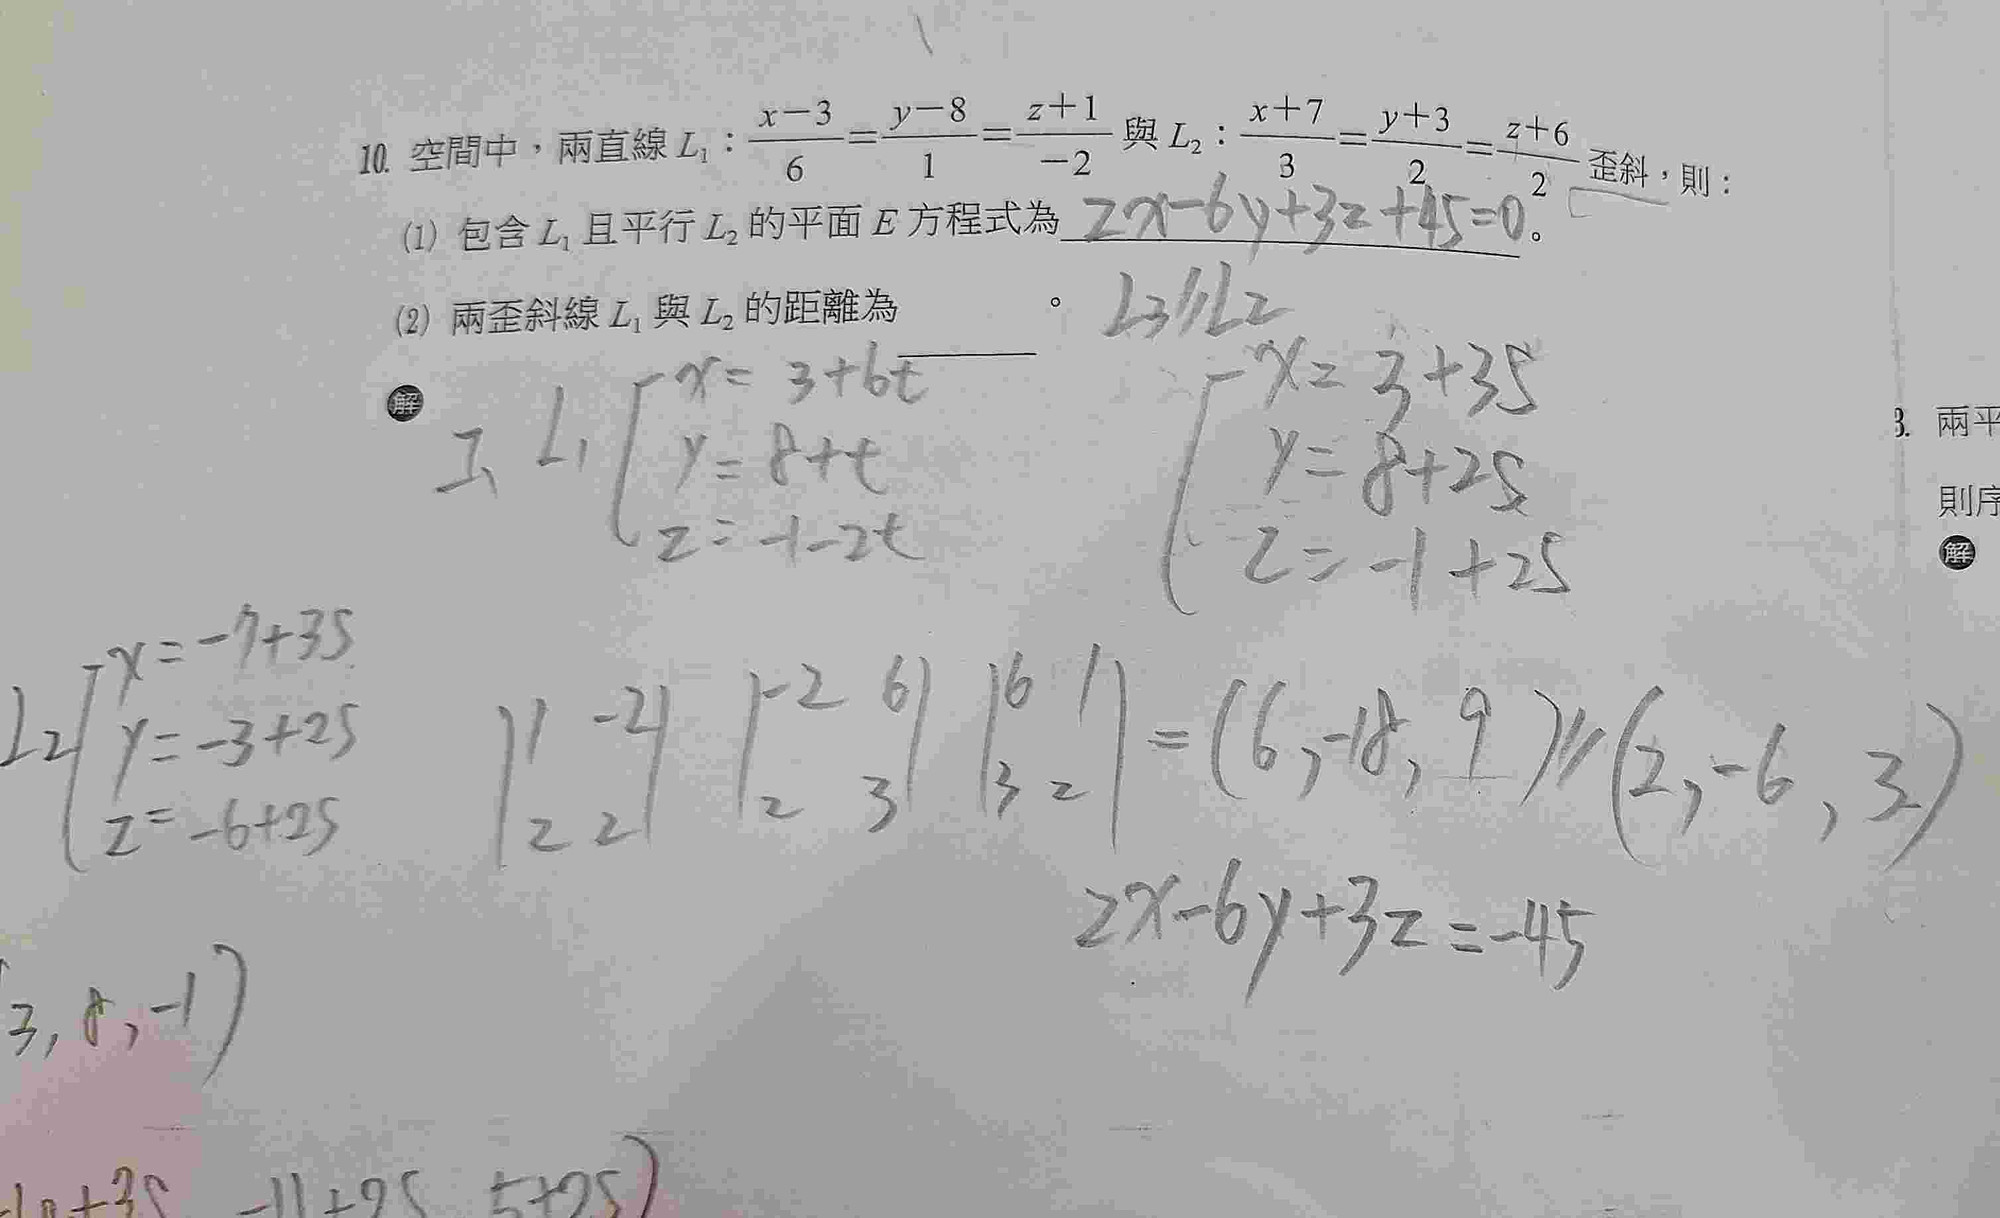 10. 空間中，兩直線 L₁：(x−3)/6=(y−8)/1=(z+1)/−2 與 L₂：(x+7)/3=(y+3)/2=(z+6)/2 歪斜，則：
(1) 包含 L₁ 且平行 L₂ 的平面 E 方程式為 2x-6y+3z+45=0。
(2) 兩歪斜線 L₁ 與 L₂ 的距離為 。
L3//L2
解
L1
x= 3+6t
y= 8+t
z= -1-2t
x= 3+3S
y= 8+2S
z= -1+2S
L2
x= -7+3S
y= -3+2S
z= -6+2S
|1 -2| |-2 6| |6 1| =(6,-18,9)//(2,-6,3)
|2 2| |2 3| |3 2|
2x-6y+3z=-45
3,8,-1)
-11+2S 5+2S)
3. 兩平
則序
解